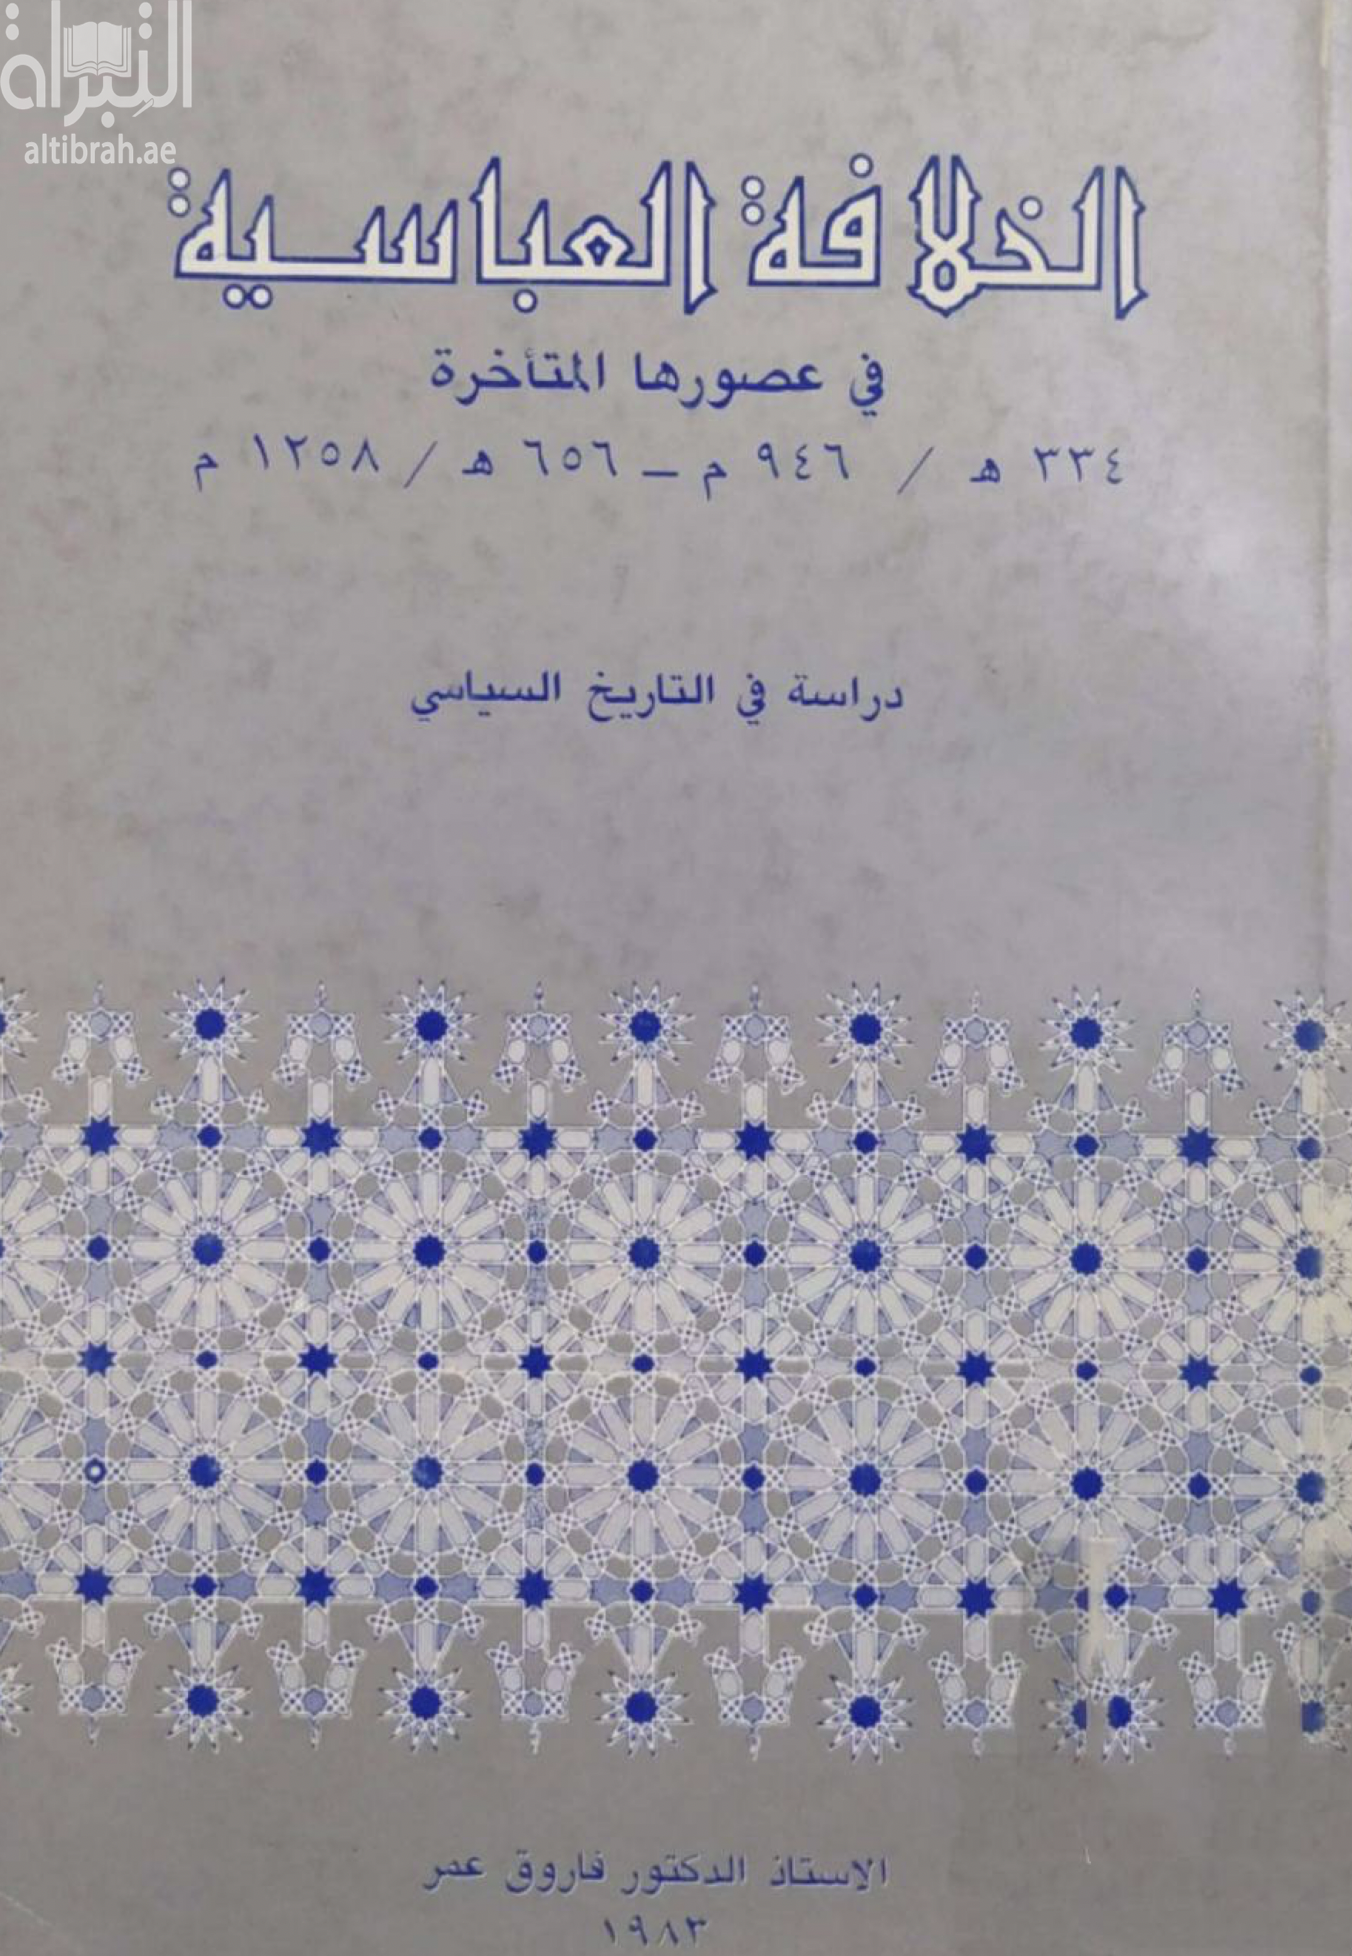 التبراة
altibrah.ae
الخلافة العباسية
في عصورها المتأخرة
٣٣٤ هـ / ٩٤٦ م – ٦٥٦ هـ / ١٢٥٨ م
دراسة في التاريخ السياسي
الاستاذ الدكتور فاروق عمر
١٩٨٣